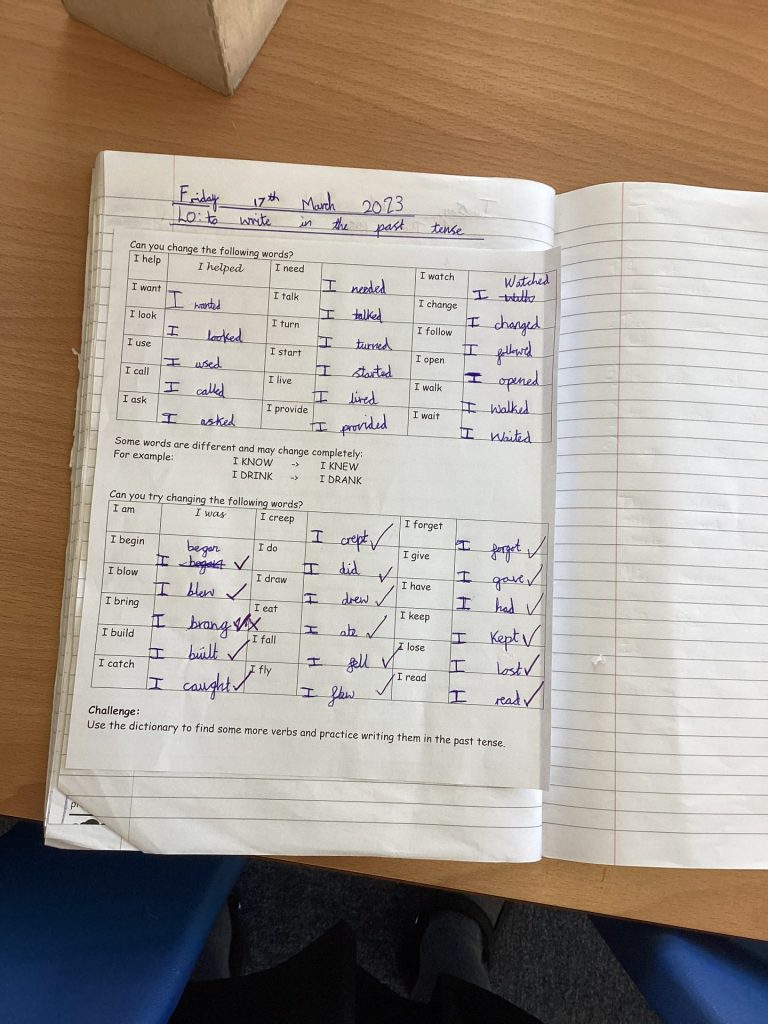 Friday 17th March 2023
LO: to write in the past tense
Can you change the following words?
I help I helped I need I needed I watch I Watched
I want I wanted I talk I talked I change I changed
I look I looked I turn I turned I follow I followed
I use I used I start I started I open I opened
I call I called I live I lived I walk I Walked
I ask I asked I provide I provided I wait I Waited
Some words are different and may change completely:
For example: I KNOW -> I KNEW
I DRINK -> I DRANK
Can you try changing the following words?
I am I was I creep I crept I forget I forgot
I begin I began I do I did I give I gave
I blow I blew I draw I drew I have I had
I bring I brang I eat I ate I keep I Kept
I build I built I fall I fell I lose I lost
I catch I caught I fly I flew I read I read
Challenge:
Use the dictionary to find some more verbs and practice writing them in the past tense.